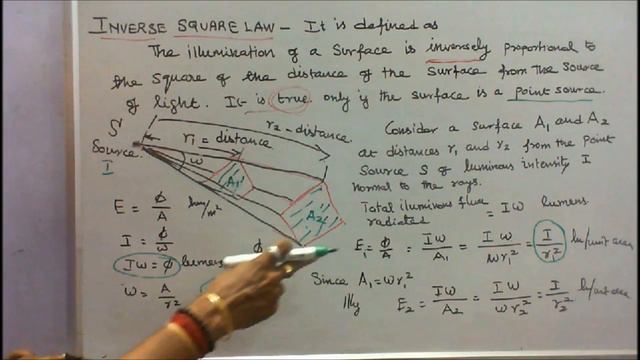 INVERSE SQUARE LAW - It is defined as
The illumination of a surface is inversely proportional to
the square of the distance of the surface from the source
of light. It is true only if the surface is a point source.
S
Source
I
r₁ = distance
r₂ - distance
ω
A₁
A₂
E = ϕ/A lum/m²
I = ϕ/ω
Iω = ϕ lumens
ω = A/r²
ϕ
Consider a surface A₁ and A₂
at distances r₁ and r₂ from the point
source S of luminous intensity I
normal to the rays.
Total illuminous flux radiates = Iω lumens
E₁ = ϕ/A = Iω/A₁ = Iω/ωr₁² = I/r₁² lm/unit area
Since A₁ = ωr₁²
Illly E₂ = Iω/A₂ = Iω/ωr₂² = I/r₂²